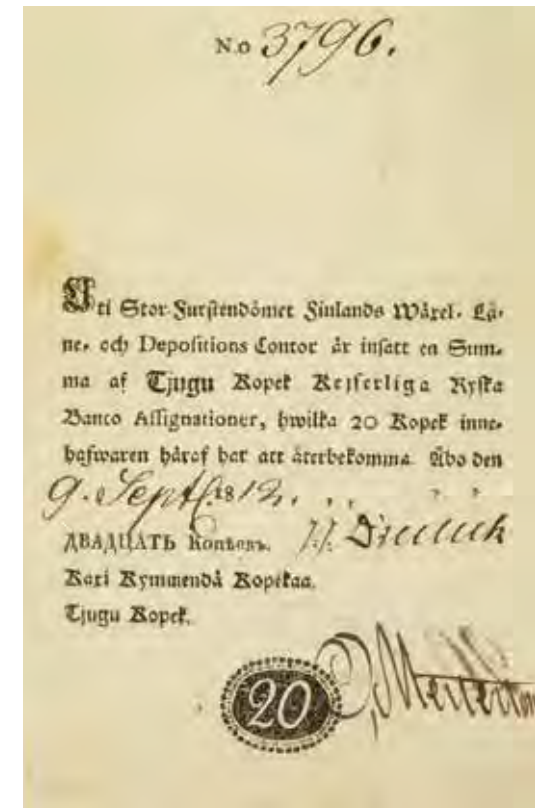 N.o 3796.
Uti Stor-Furstendömet Finlands Wäxel- Lå-
ne- och Depositions Contor är insatt en Sum-
ma af Tjugu Kopek Kejserliga Ryska
Banco Assignationer, hwilka 20 Kopek inne-
hafwaren häraf har att återbekomma. Åbo den
9. Sept. 1812.
ДВАДЦАТЬ Копѣекъ.
Kaxi Kymmendä Kopekaa.
Tjugu Kopek.
20